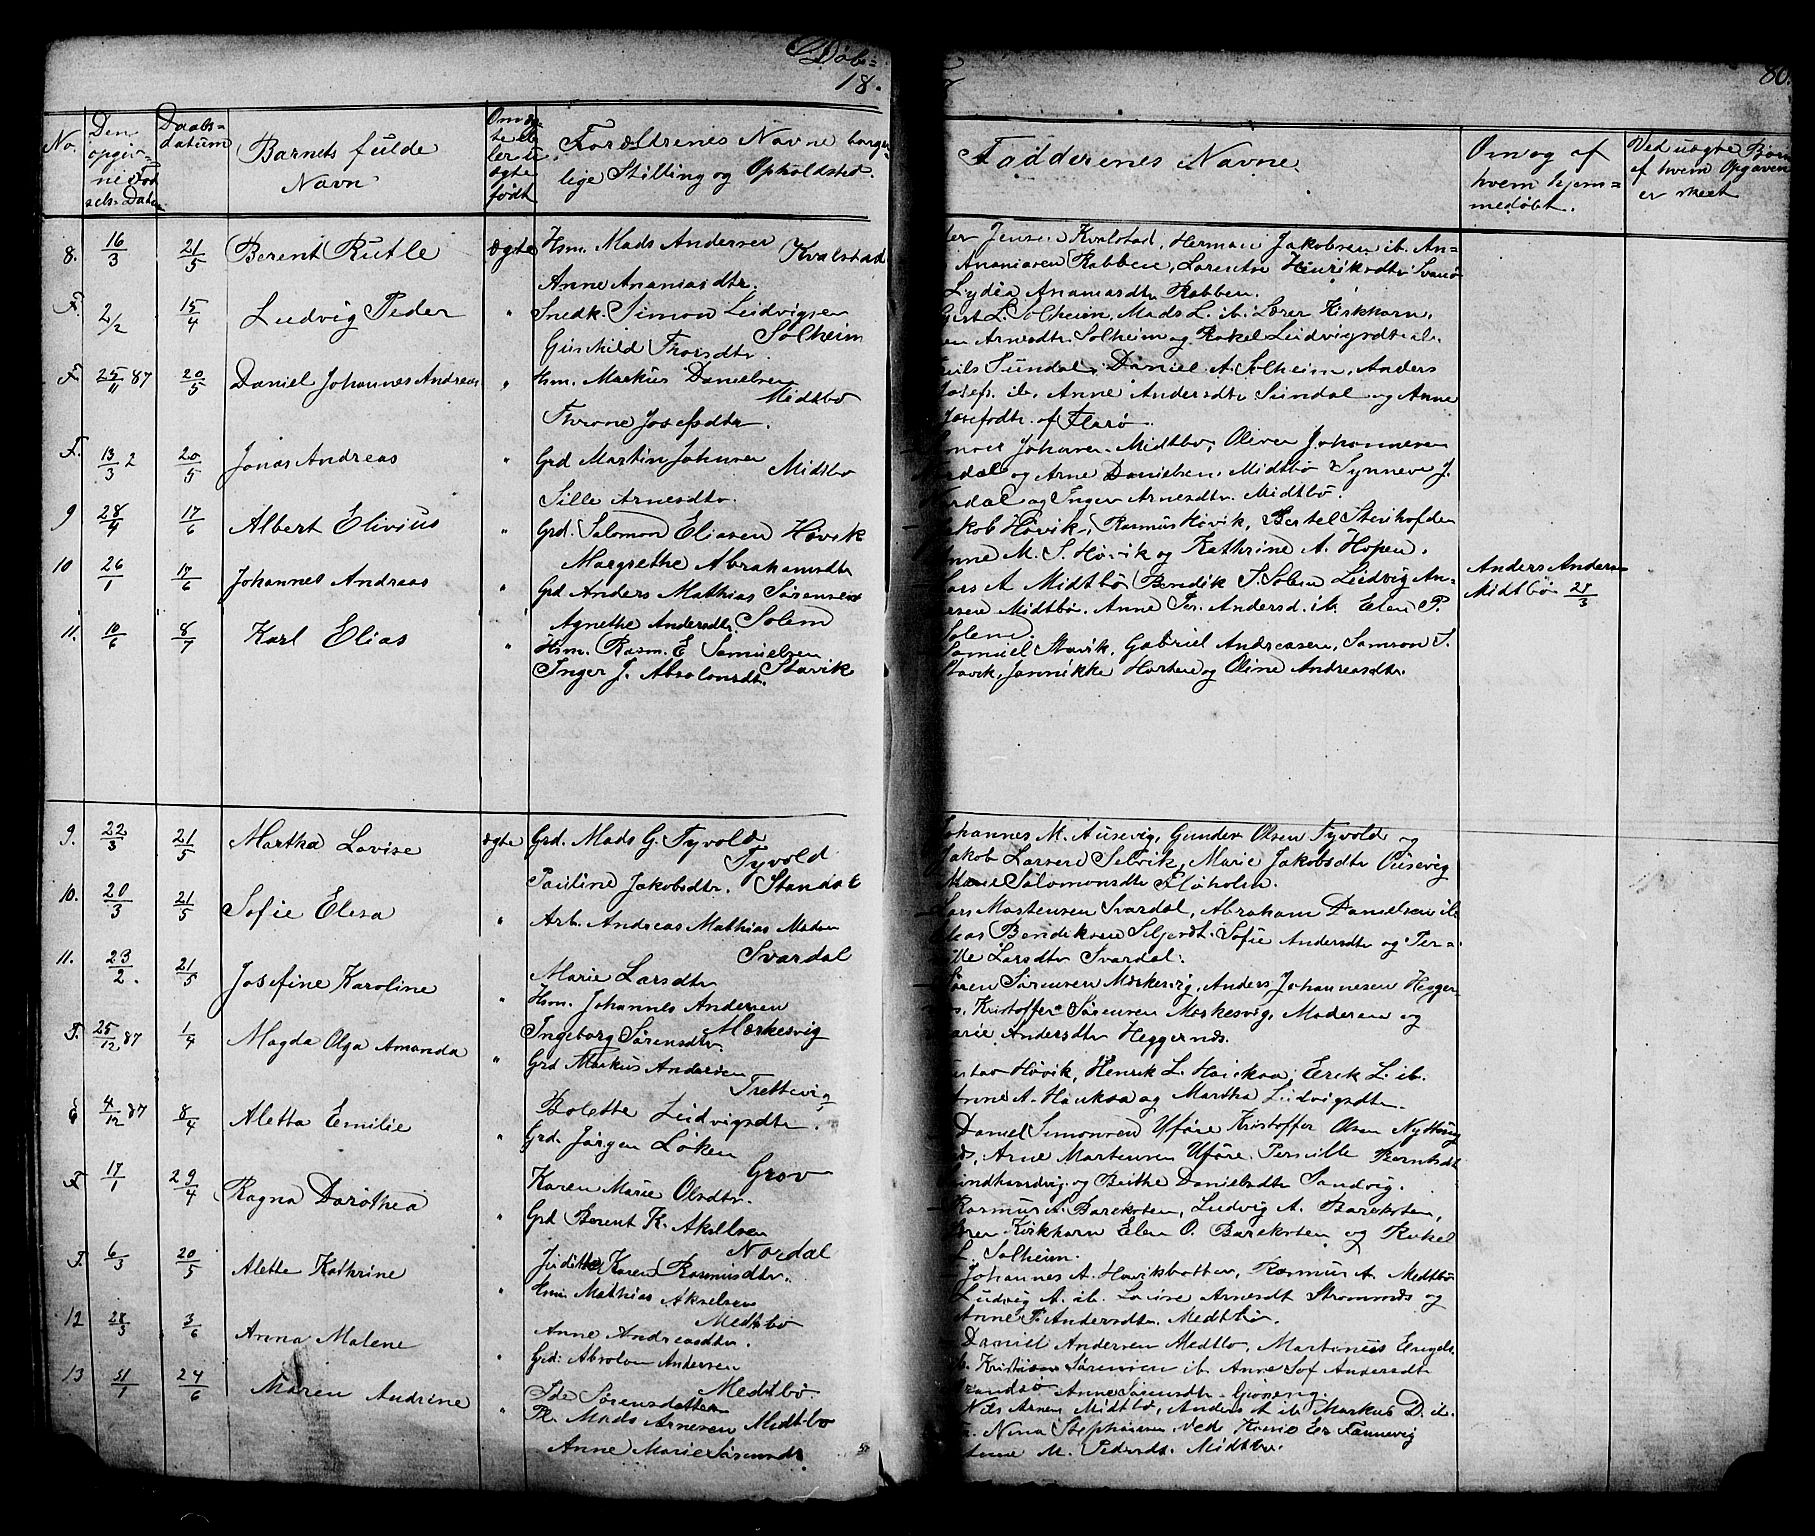 Döbe=
18.
80.
No.
Den opgivne Fødsels-Datum
Daabs-datum
Barnets fulde Navn
Om ægte eller uægte født
Forældrenes Navne borgerlige Stilling og Opholdsted.
Faddernes Navne
Om og af hvem hjemmedøbt.
Ved uægte Børn af hvem Opgaven er skeet
8. 16/3 21/5 Berent Rutle ægte Hsm. Mads Andersen Kvalstad
Anne Ananiasdtr.
Jensen Kvalstad, Herman Jakobsen ib. An=
Ananiasen Rabben, Lorentse Henriksdtr Svanø
Lydia Ananiasdtr. Rabben.
F. 2/2 15/4 Ludvig Peder " Snedk. Simon Ludvigsen
Solheim
Gunhild Thorsdtr.
Gert L. Solheim, Mads L. ib. Lærer Kirkhorn,
Arnesdtr. Solheim og Rakel Ludvigsdtr al.
F. 25/11 87 20/5 Daniel Johannes Andreas " Hsm. Markus Danielsen
Midtbø
Throne Josefsdtr.
Nils Sundal, Daniel A. Solheim, Anders
Josefs. ib. Anne Andersdtr Sundal og Anne
Josefsdtr. af Florø.
F. 13/3 2 20/5 Jonas Andreas " Grd Martin Johnsen Midtbø
Sille Arnesdtr.
Johansen Midtbø, Oliver Johannesen
og Arne Danielsen Midtbø Synneve J.
og Inger Arnesdtr. Midtbø.
9 28/4 17/6 Albert Elivius " Grd. Salomon Eliasen Høvik
Margrethe Abrahamsdtr
Jakob Høvik, Rasmus Høvik, Bertel Steinhofden
Anne M. S. Høvik og Kathrine A. Hopen.
10 26/1 17/6 Johannes Andreas " Grd Anders Mathias Sørensen
Agnethe Andersdtr. Solem
Lars A Midtbø Bendik S. Solem Ludvig An=
Midtbø. Anne Andersd. ib. Elen P.
Solem.
Anders Anders=
Midtbø 25/3
11. 10/6 8/7 Karl Elias " Hsm. Rasm. E Samuelsen
Inger J. Absolonsdtr. Stavik
Samuel Stavik, Gabriel Andreasen, Samson S.
Stavik, Jannikke og Oline Andreasdtr.
9. 22/3 21/5 Martha Lovise ægte Grd. Mads G. Tyvold
Tyvold
Pauline Jakobsdtr. Standal
Johannes M. Ausevig, Gunder Olsen Tyvold og
Jakob Larsen Selvik, Marie Jakobsdtr Ausevig
Salomonsdtr Floholm.
10. 20/3 21/5 Sofie Elesa " Arb. Andreas Mathias Madsen
Svardal
Marie Larsdtr
Lars Mortensen Svardal, Abraham Danielsen ib.
Bendiksen Seljerdt. Sofie Andersdtr og Per=
Larsdtr Svardal.
11. 23/2. 21/5 Josefine Karoline " Hsm. Johannes Andersen
Ingeborg Sørensdtr. Morkesvig
Søren Sørensen Morkesvig, Anders Johannesen Hegger
Kristoffer Sørensen Morkesvig, Madsen og
Marie Andersdtr Heggernæs.
F. 25/12 87 1/4 Magda Olga Amanda " Grd Markus Andersen
Trettevig
Bolette Ludvigsdtr.
Gustav Høvik, Henrik L. Haukaa, Erik L. ib.
Anne A. Haukaa og Martha Ludvigsdtr.
4/12 87 8/4 Aletta Emilie " Grd. Jørgen Løken
Grov
Karen Marie Olsdtr.
Daniel Simonsen Uføre Kristoffer Olsen
Arne Mortensen Uføre Pernille Berntsdt
og Beithe Danielsdtr Sandvig.
F. 17/1 29/4 Ragna Dorothea " Grd Berent K. Akselsen
Nordal
Judithe Karen Rasmusdtr.
Rasmus A. Barekoten, Ludvig A. Barekoten,
Kirkhorn Elen O. Barekoten og Rakel
L. Solheim.
F. 6/3 20/5 Alette Kathrine " Hsm. Mathias Akselsen
Medtbø
Anne Andreasdtr.
Johannes A. Høvikbotten, Rasmus A. Medtbø
Ludvig A. ib. Lovise Arnesdt Strømsnæs og
Anne P. Andersdtr. Medtbø.
12 28/3 3/6 Anna Malene " Grd. Absolon Andersen
Medtbø.
Ide Sørensdatter
Daniel Andersen Medtbø, Martinus Engels
Kristian Sørensen ib. Anne Sof. Andersdt
Anne Sørensdtr.
13 31/1 24/6 Maren Andrine " Pl. Mads Arnesen Midtbø
Anne Marie Sørensdtr
Nils Arnesen Midtbø, Anders A ib. Markus D. ib.
Nina Stephansen
Anne M. Pedersdt. Midtbø.